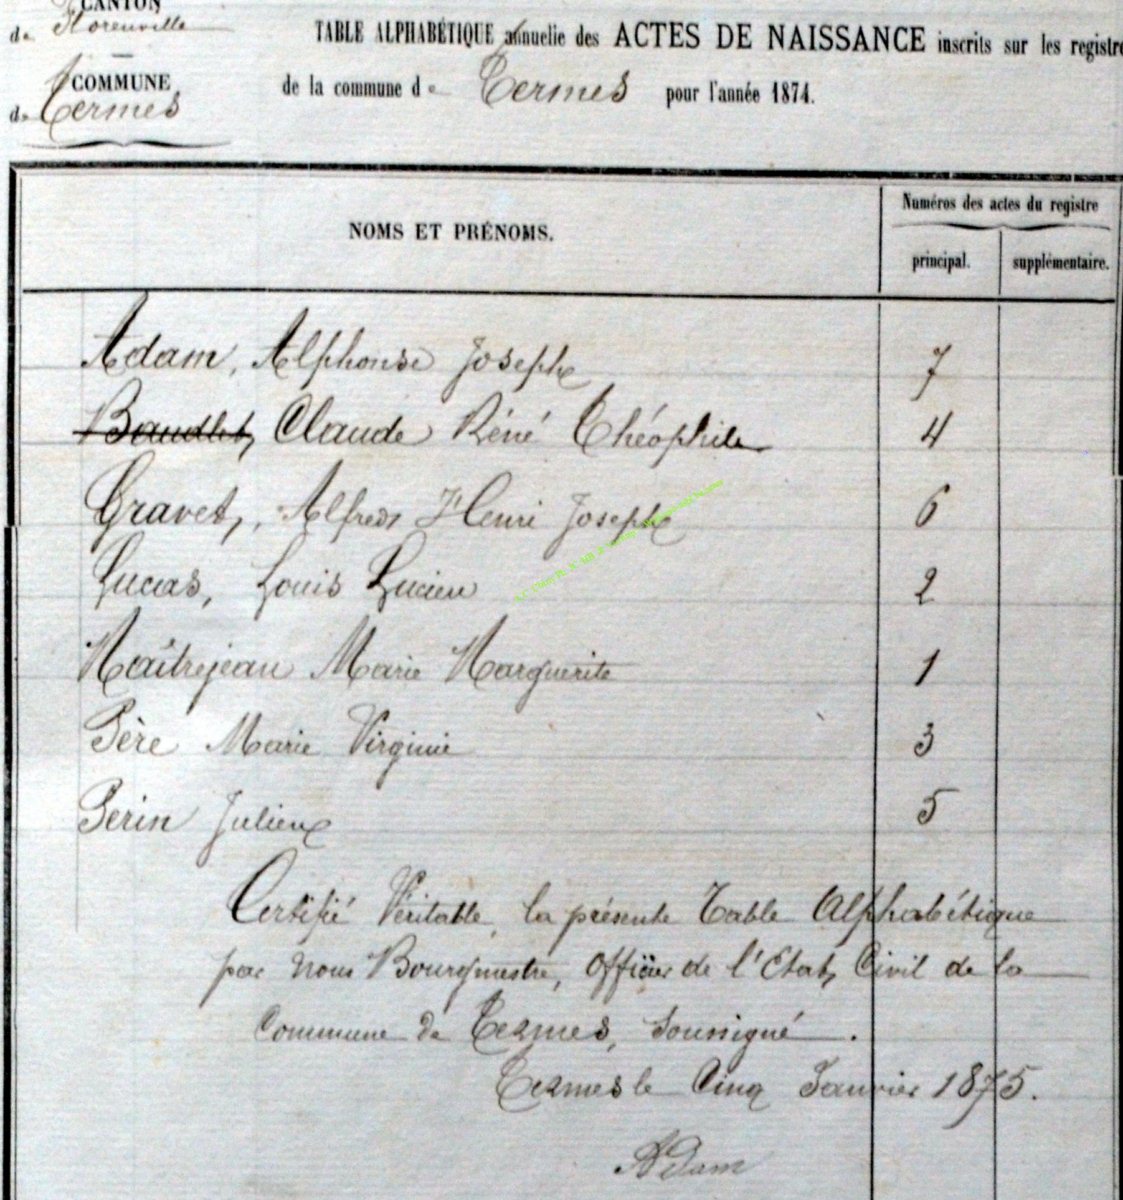 CANTON
de Florenville
COMMUNE
de Termes
TABLE ALPHABÉTIQUE annuelle des ACTES DE NAISSANCE inscrits sur les registre
de la commune de Termes pour l'année 1874.
NOMS ET PRÉNOMS.
Numéros des actes du registre
principal. supplémentaire.
Adam, Alphonse Joseph 7
Baudlet, Claude Réné Théophile 4
Gravet, Alfred Henri Joseph 6
Lucas, Louis Lucien 2
Maîtrejean Marie Marguerite 1
Père Marie Virginie 3
Perin Julien 5
Certifié Véritable, la présente Table Alphabétique
par nous Bourgmestre, Officier de l'Etat Civil de la
Commune de Termes, soussigné.
Termes le Cinq Janvier 1875.
Adam